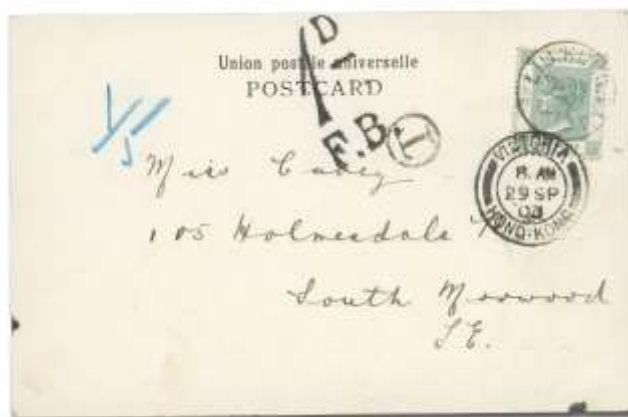 1D
Union postale universelle
POSTCARD
1/5
F.B.
T
VICTORIA
8 AM
29 SP
03
HONG-KONG
Miss
105 Holmesdale
South Norwood
S.E.